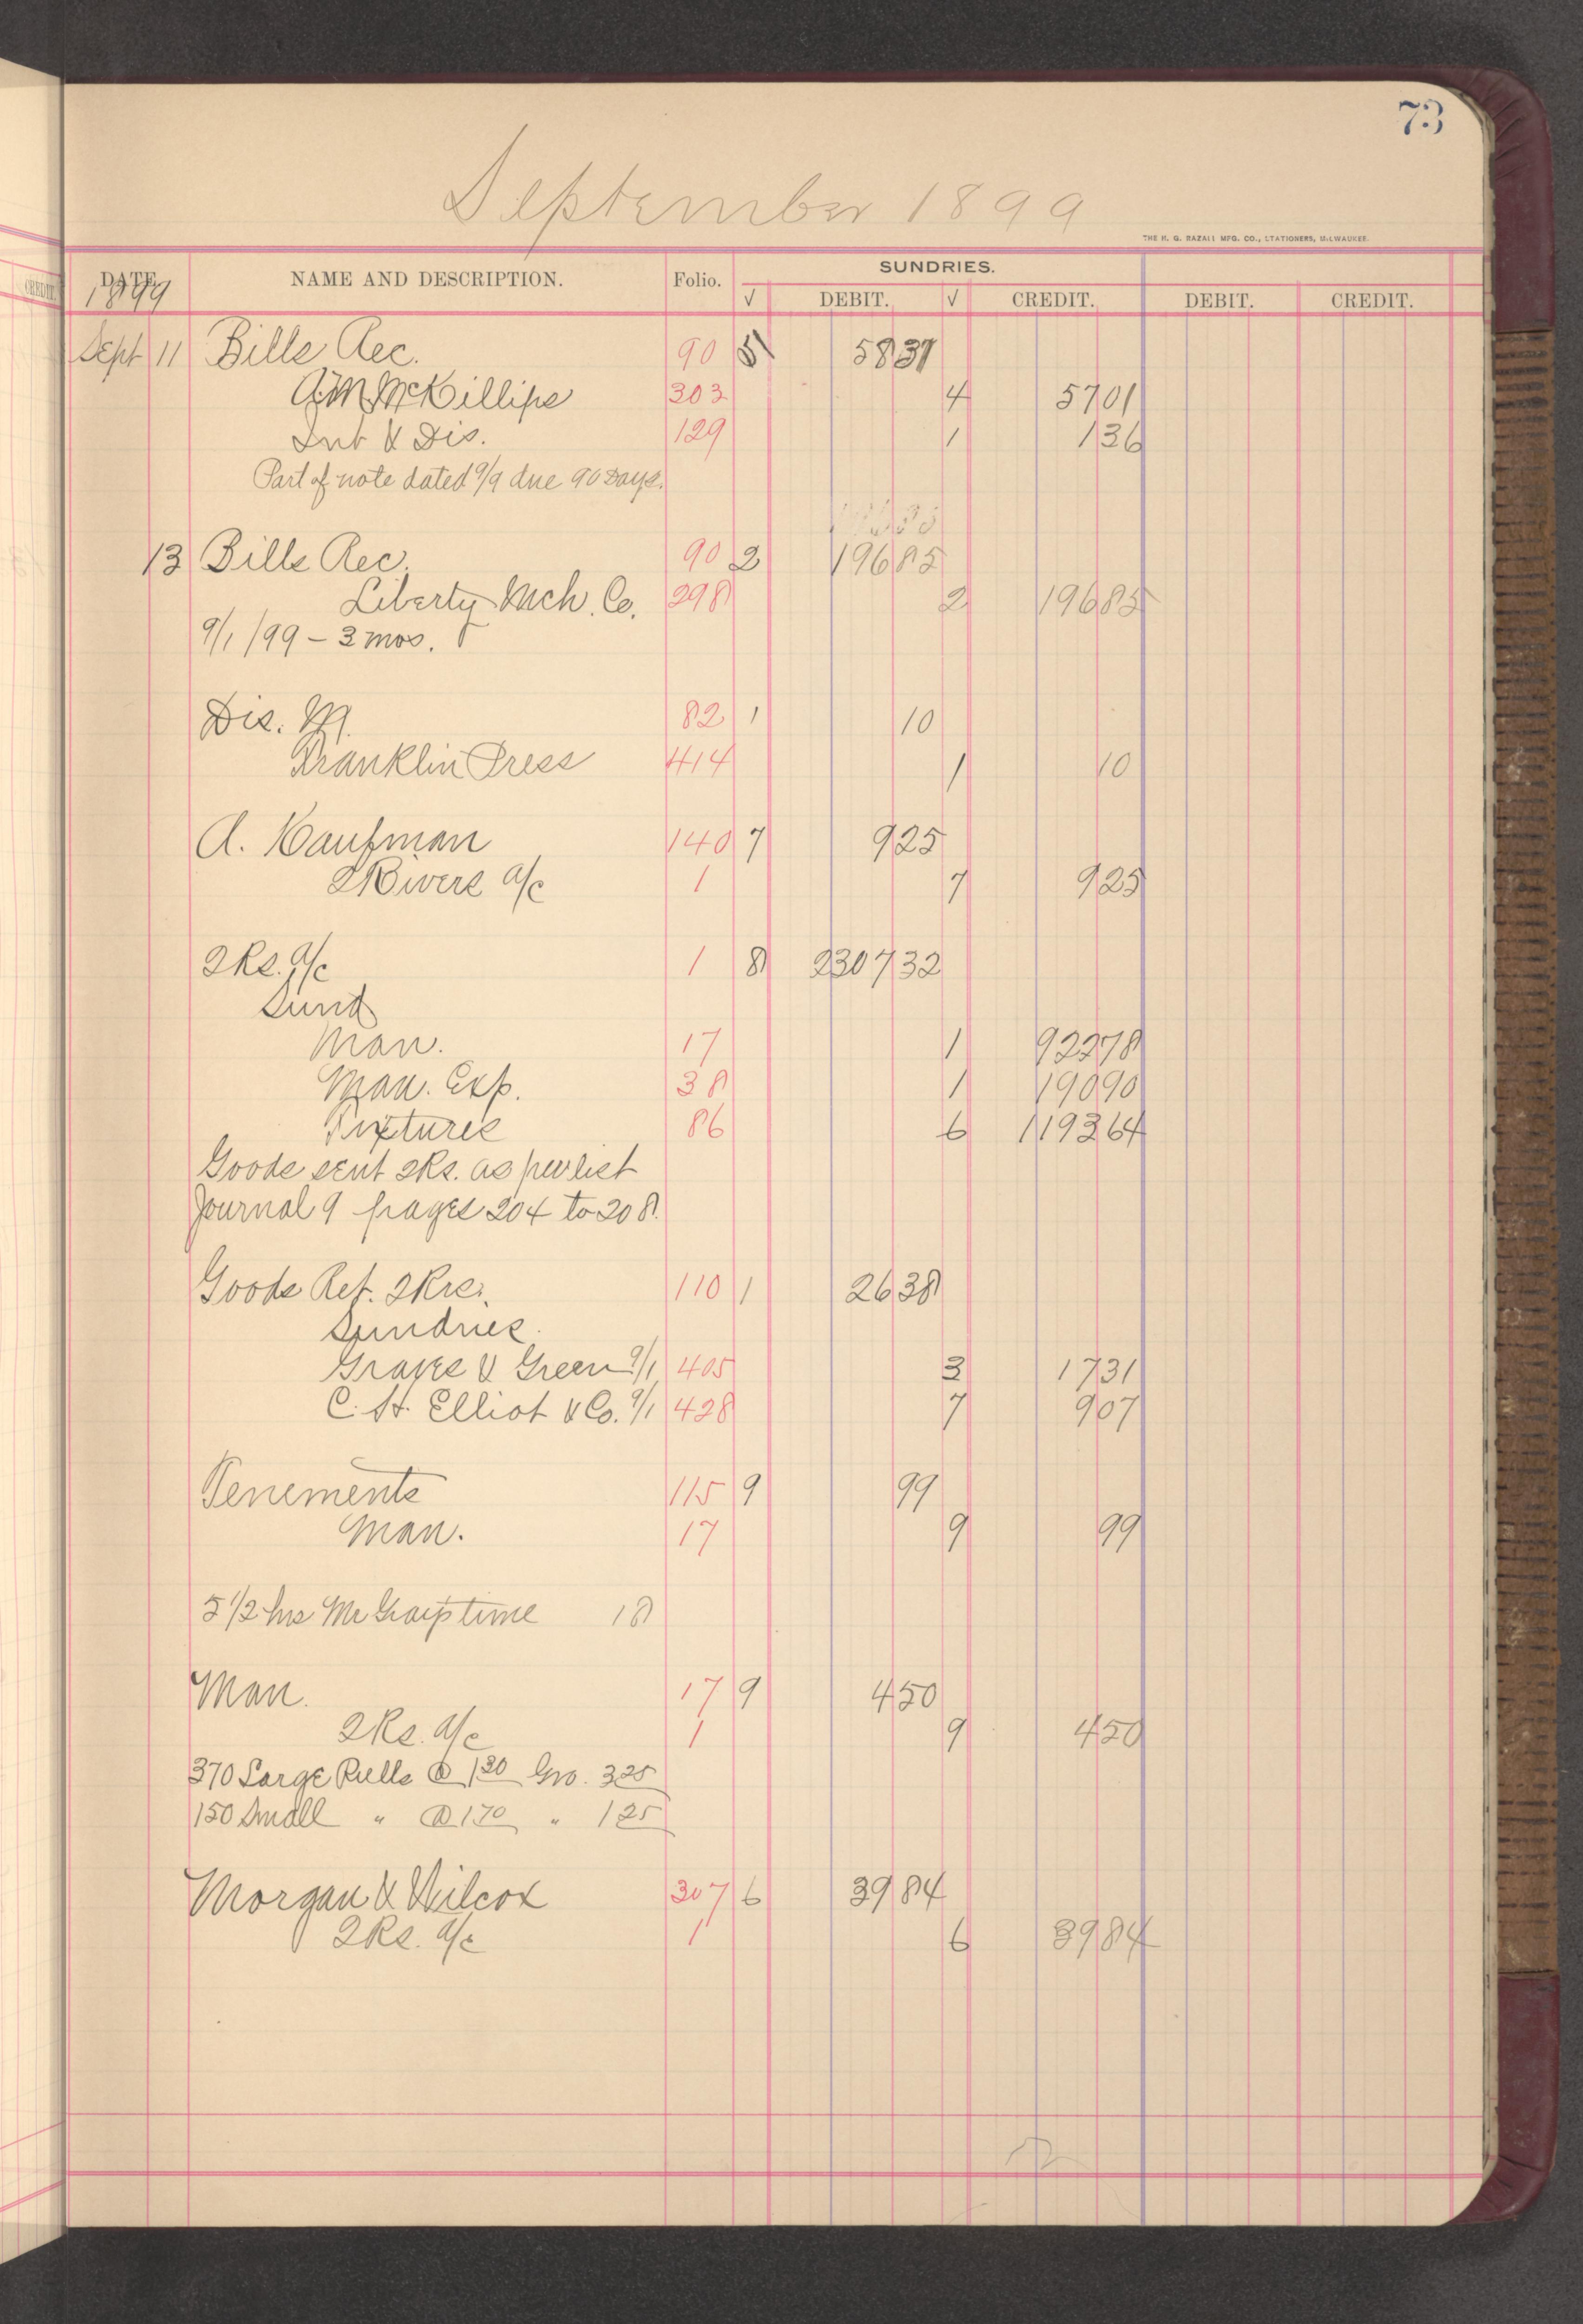 73
September 1899
THE H. G. RAZALL MFG. CO., STATIONERS, MILWAUKEE.
DATE. NAME AND DESCRIPTION. Folio. √ SUNDRIES. DEBIT. √ CREDIT. DEBIT. CREDIT.
1899
Sept 11 Bills Rec. 90 5 5837
A.M. McKillips 303 4 5701
Int & Dis. 129 1 136
Part of note dated 9/9 due 90 Days.
13 Bills Rec. 90 2 19685
Liberty Mch. Co. 298 2 19685
9/1/99 - 3 mos.
Dis. M. 82 1 10
Franklin Press 414 1 10
A. Kaufman 140 7 925
2 Rivers a/c 1 7 925
2Rs. a/c 1 8 230732
Sund
Man. 17 1 92278
Man. Exp. 38 1 19090
Fixtures 86 6 119364
Goods sent 2Rs. as per list
Journal 9 pages 204 to 208.
Goods Ret. 2Rrs. 110 1 2638
Sundries.
Graves & Green 9/1 405 3 1731
C. H. Elliot & Co. 9/1 428 7 907
Tenements 115 9 99
Man. 17 9 99
5 1/2 hrs Mr Gray's time 18
Man. 17 9 450
2Rs. a/c 1 9 450
370 Large Pulls @ 130 Gro. 325
150 Small " @ 120 " 125
Morgan & Wilcox 307 6 3984
2Rs. a/c 1 6 3984